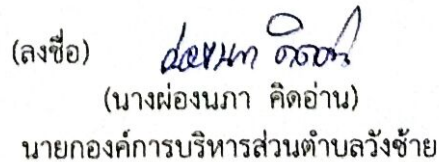 (ลงชื่อ) ผ่องนภา คิดอ่าน
(นางผ่องนภา คิดอ่าน)
นายกองค์การบริหารส่วนตำบลวังซ้าย